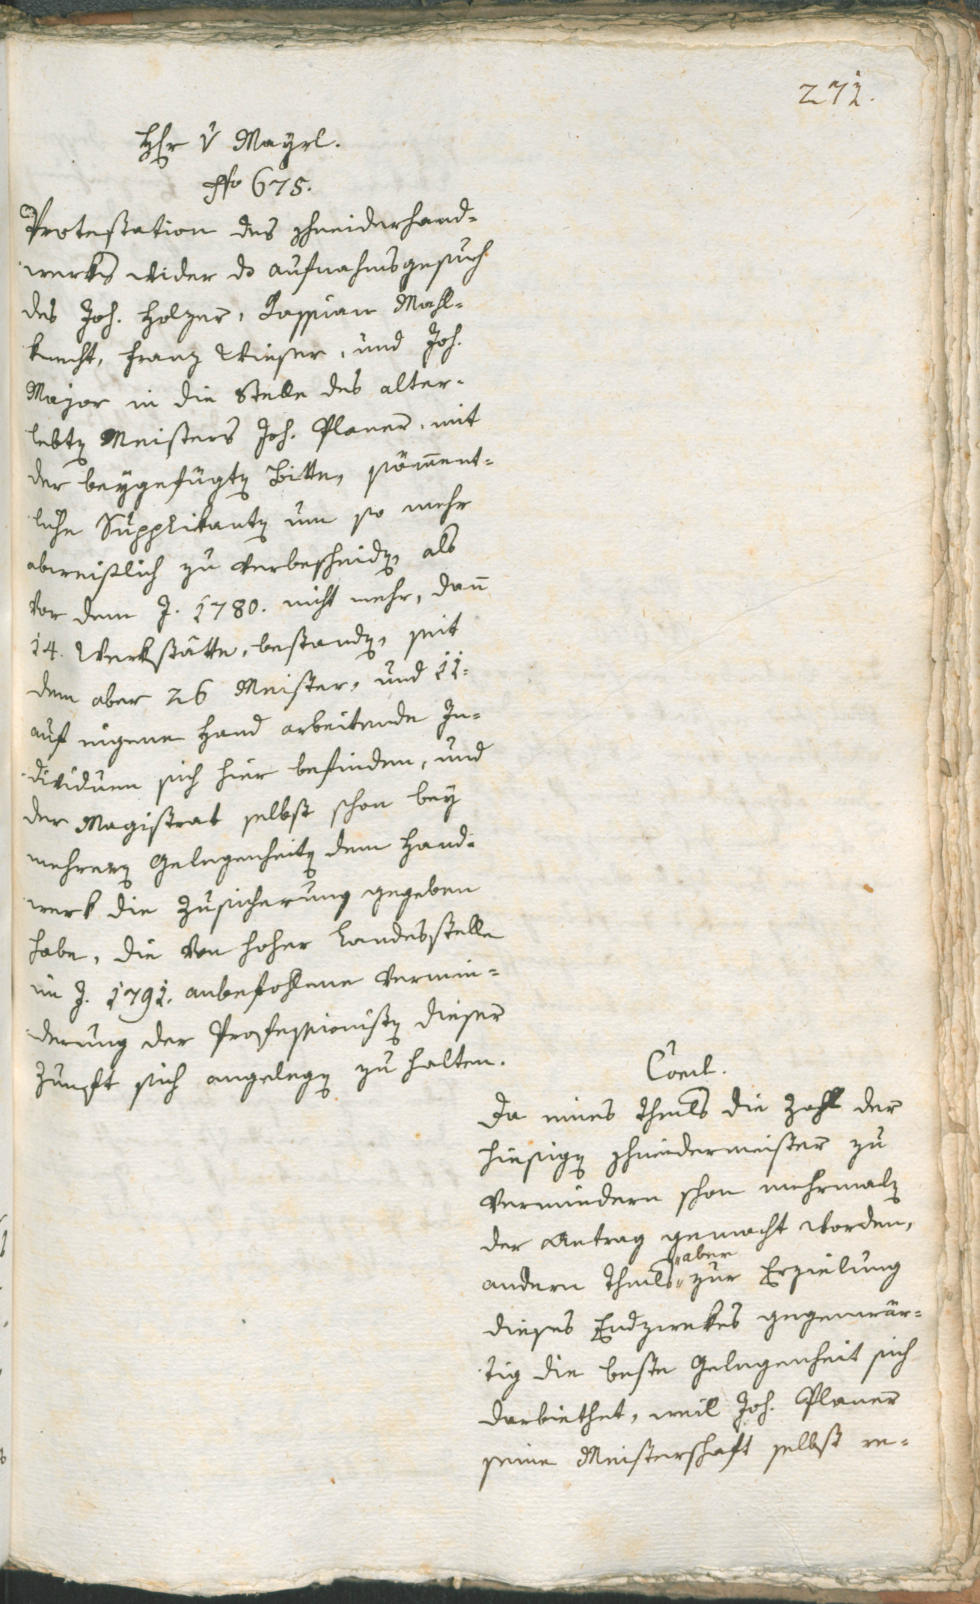 271.
Hr v Mayrl.
No 675.
Protestation des Schneiderhand=
werks wider ds aufnahmsgesuch
des Joh. Holzer, Kassian Mahl=
knecht, Franz Wieser, und Joh.
Major in die Stelle des alter=
lebten Meisters Joh. Planer, mit
der beygefügten Bitte, sämment=
liche Supplikanten um so mehr
abweislich zu verbescheiden, als
vor dem J. 1780. nicht mehr, dann
14. Werkstätte, bestanden, seit
dem aber 26 Meister, und 11.
auf eigene Hand arbeitende In=
dividuen sich hier befinden, und
der Magistrat selbst schon bey
mehreren Gelegenheiten dem Hand=
werk die Zusicherung gegeben
habe, die von hoher Landesstelle
im J. 1791. anbefohlene Vermin=
derung der Professionisten dieser
Zunft sich angelegen zu halten.
Concl.
Da eines Theils die Zahl der
hiesigen Schneidermeister zu
vermindern schon mehrmalen
der Antrag gemacht worden,
andern Theils aber zur Erzielung
dieses Endzwekes gegenwär=
tig die beste Gelegenheit sich
darbiethet, weil Joh. Planer
seine Meisterschaft selbst re=